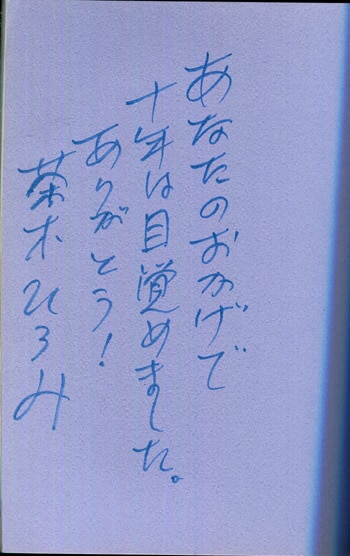 あなたのおかげで
十年は目覚めました。
ありがとう！
茶木ひろみ